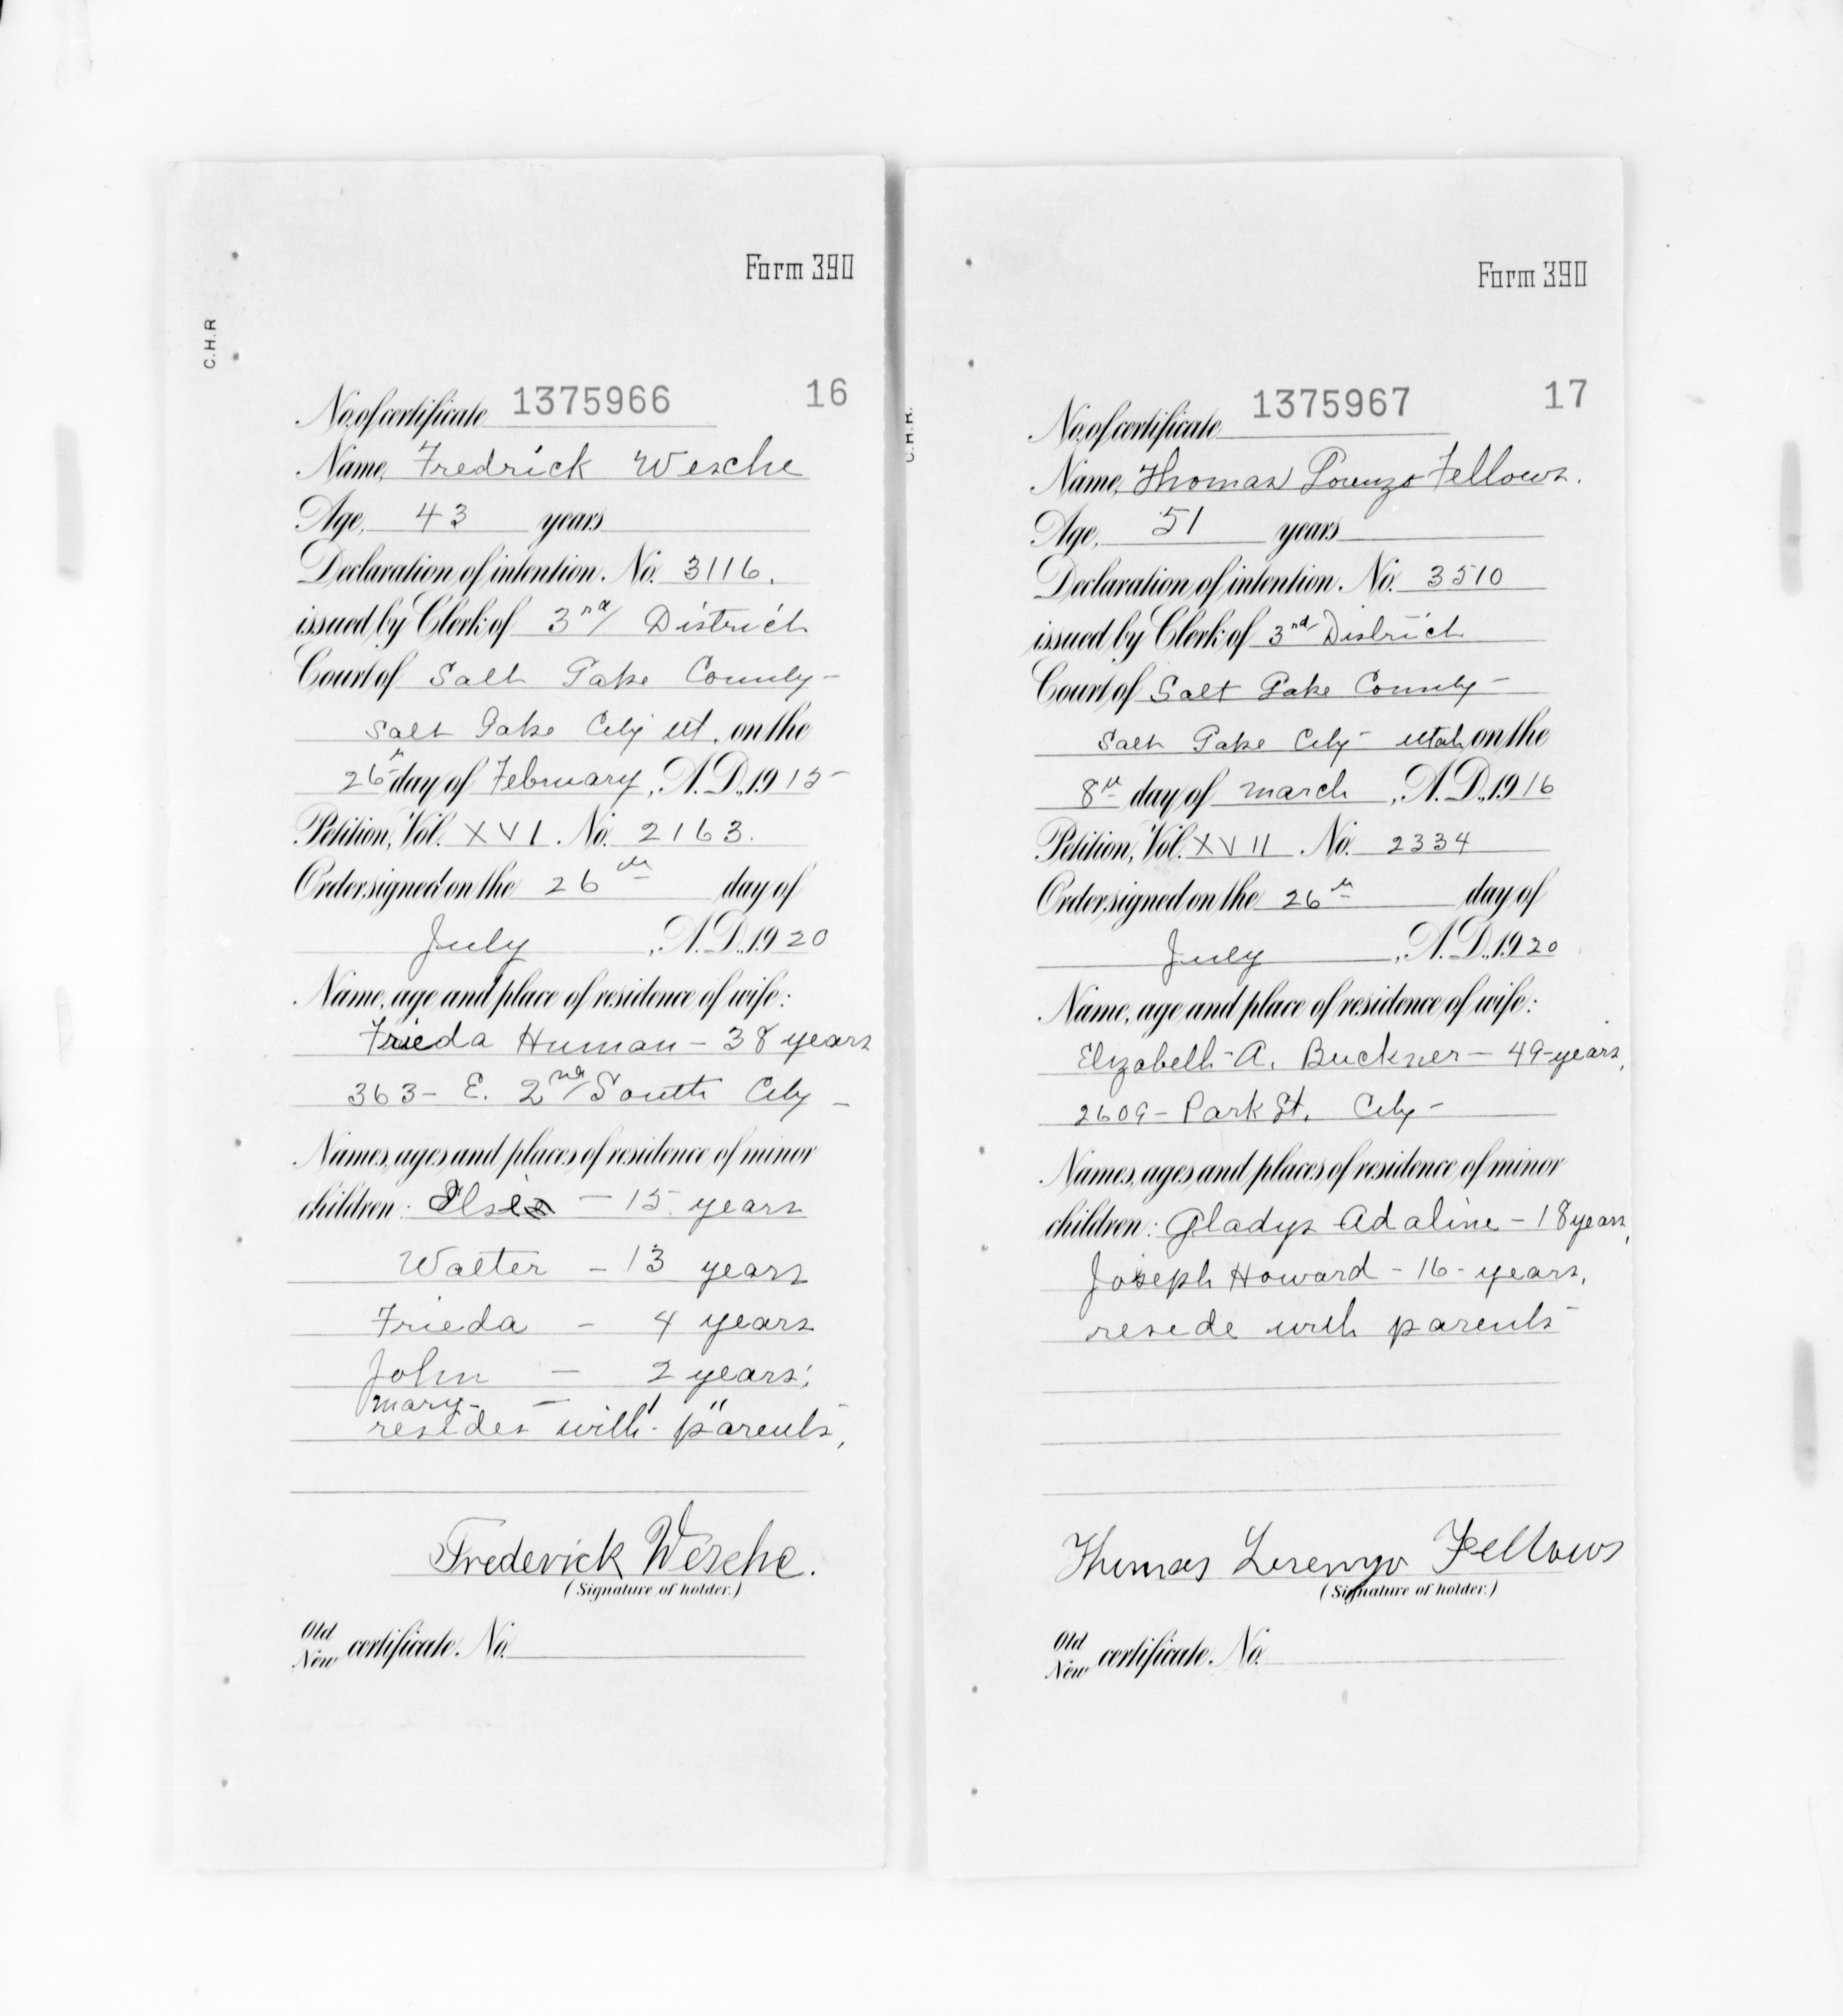 Form 390
C.H.R
No. of certificate 1375966 16
Name, Fredrick Wesche
Age, 43 years
Declaration of intention. No. 3116.
issued by Clerk of 3rd District
Court of Salt Lake County-
Salt Lake City Ut. on the
26th day of February, A.D., 1915-
Petition, Vol. XVI. No. 2163.
Order signed on the 26th day of
July, A.D. 1920
Name, age and place of residence of wife:
Frieda Human - 38 years
363- E. 2nd South City -
Names, ages and places of residence of minor
children: Elsie - 15 years
Walter - 13 years
Frieda - 4 years
John - 2 years;
Mary - 1 "
resides with parents,
Frederick Wesche.
(Signature of holder.)
Old
New certificate. No.
Form 390
C.H.R.
No. of certificate 1375967 17
Name, Thomas Lorenzo Fellows.
Age, 51 years
Declaration of intention. No. 3510
issued by Clerk of 3rd District
Court of Salt Lake County-
Salt Lake City- Utah on the
8th day of March, A.D., 1916
Petition, Vol. XVII. No. 2334
Order signed on the 26th day of
July, A.D., 1920
Name, age and place of residence of wife:
Elizabeth A. Buckner - 49-years,
2609- Park St. City-
Names, ages and places of residence of minor
children: Gladys Adaline - 18 years,
Joseph Howard - 16- years,
reside with parents-
Thomas Lorenzo Fellows
(Signature of holder.)
Old
New certificate. No.